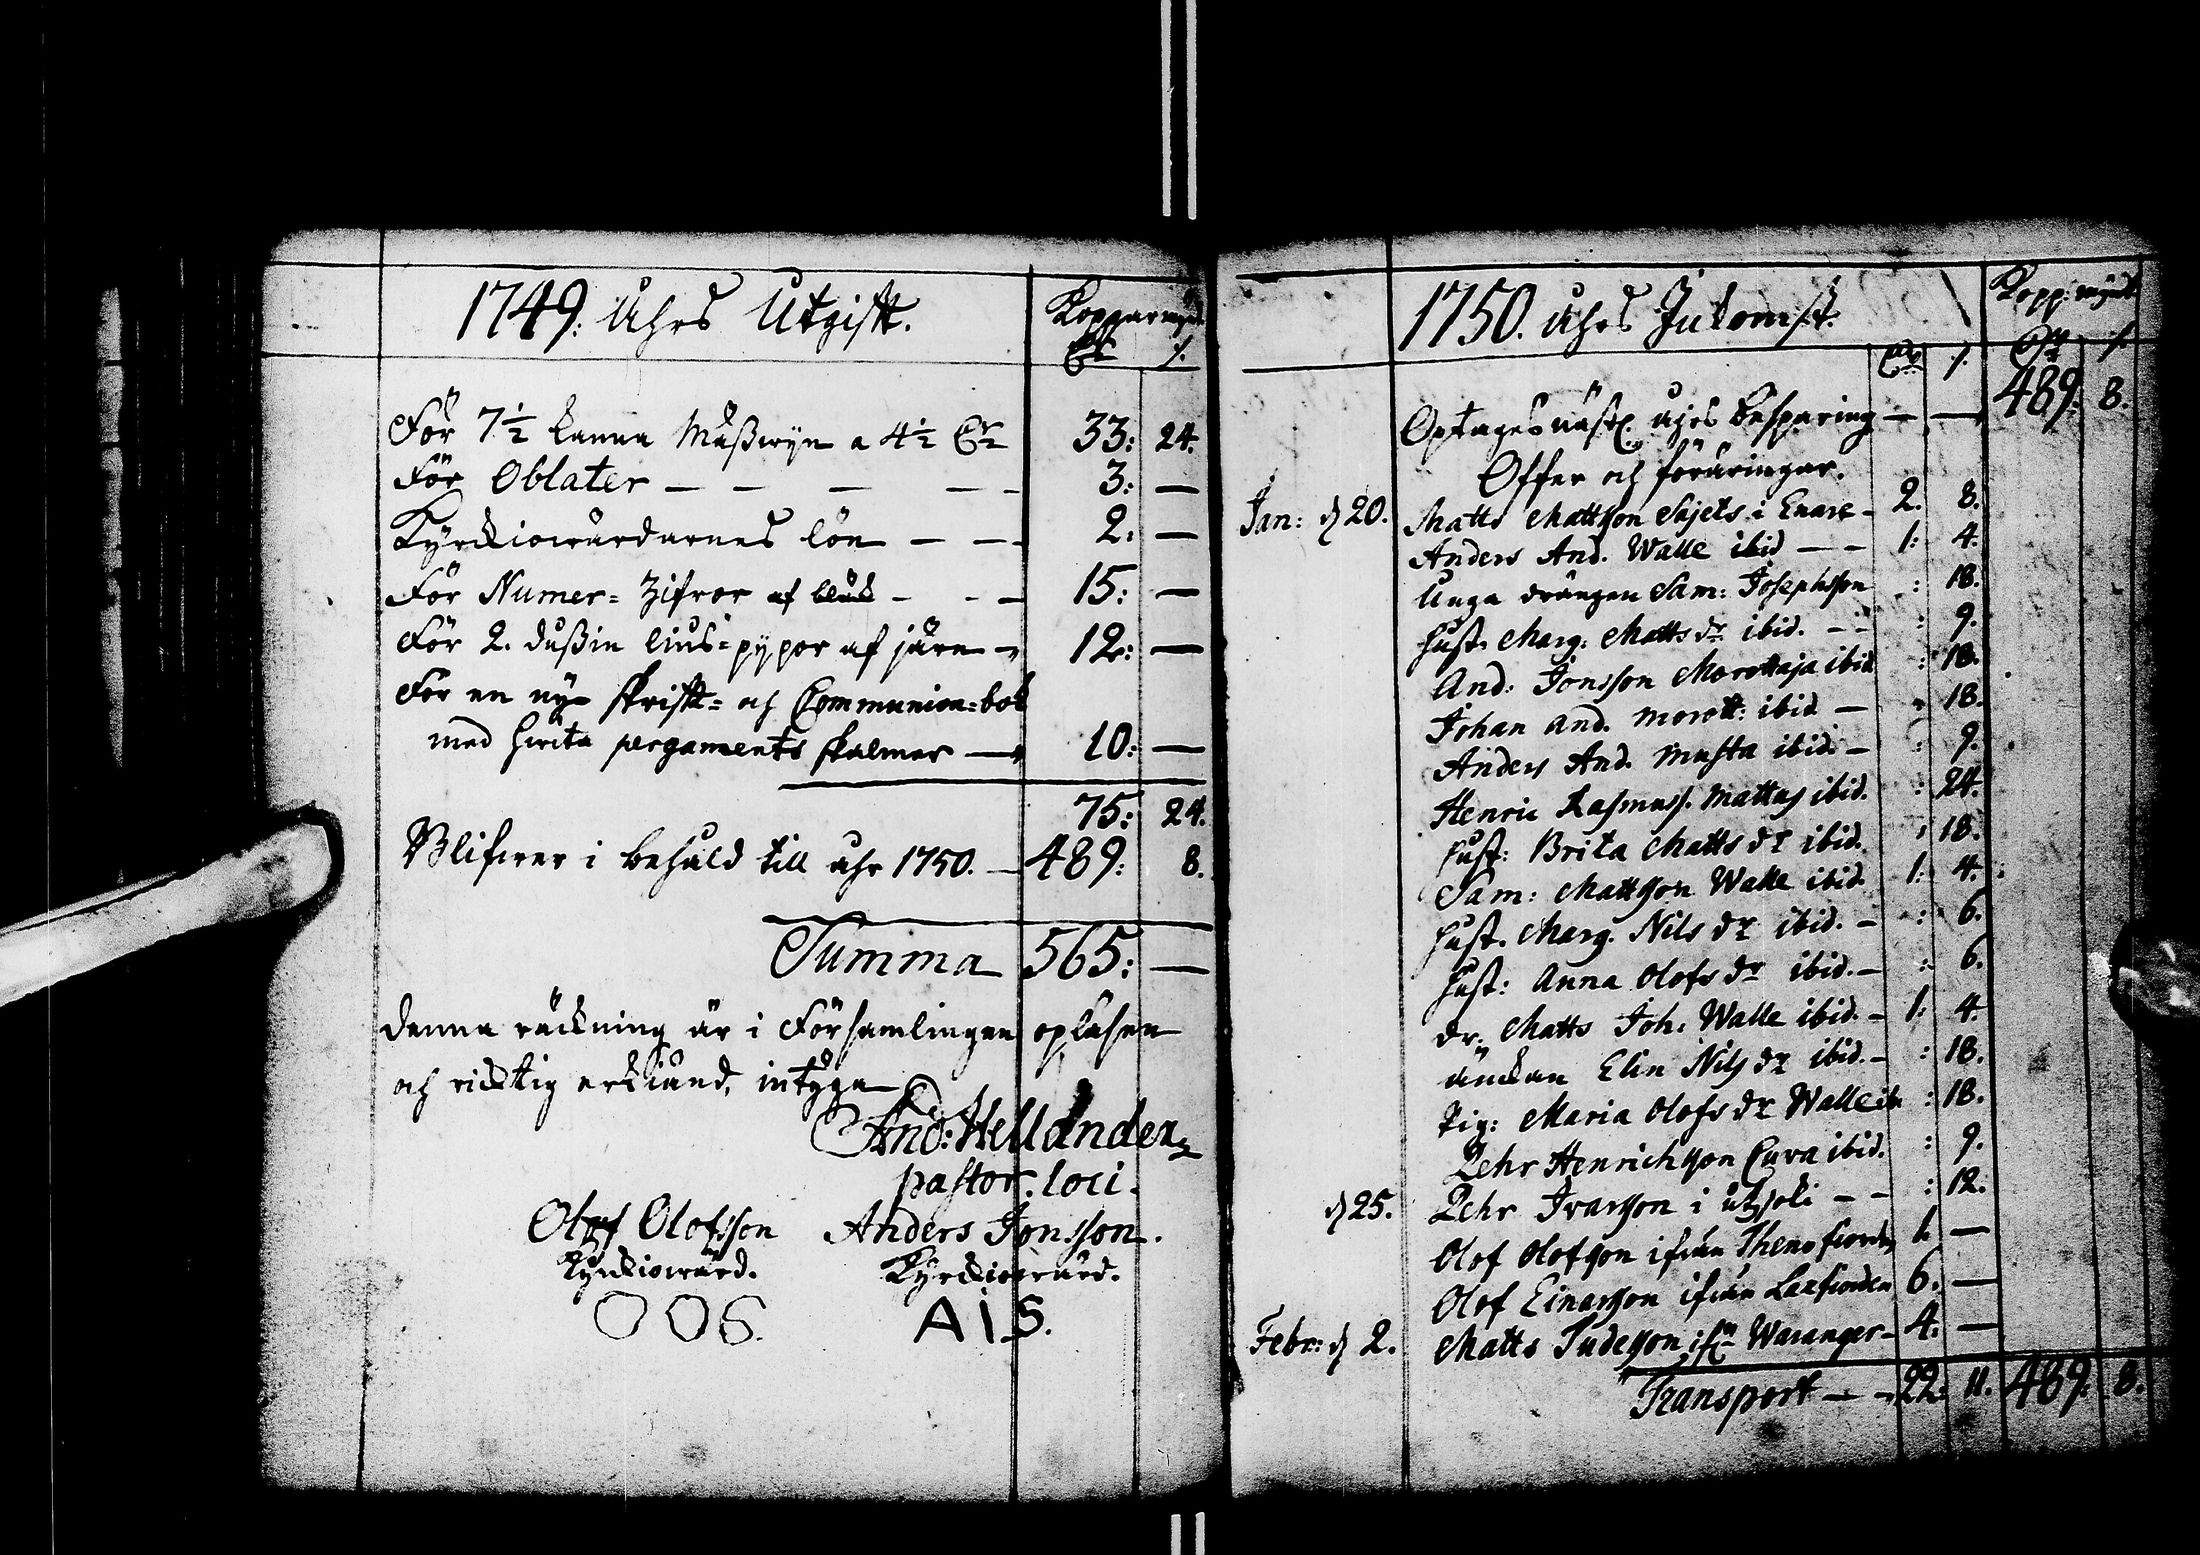 1749. Åhrs Utgift.
Kopparmynt
Dr /.
För 7½ kanna Mäßwyn a 4½ Dr 33: 24.
För Oblater — — — — — 3: —
Kyrckiowärdarnes lön — — 2. —
För Numer= Zifror af bläck — — — 15: —
För 2. dußin lius=pypor af järn — 12: —
För en ny skrift= och Communion=bok
med hwita pergaments skalmer — 10: —
75: 24.
Blifwer i behåld till åhr 1750. — 489: 8.
Summa 565: —
Denna räckning är i Församlingen opläsen
och ricktig erkiänd, intyga
And: Hellander
pastor. loci.
Olof Olofsson Anders Jonsson.
Kyrckiowärd. Kyrckiowärd.
OOS. AIS.
1750. Åhrs Inkomst.
Kopp: mynt.
Dr /. Dr /.
Optages näst. åhrs besparing — — 489: 8.
Offer och föräringar.
Jan: d 20. Matts Mattsson Sajets i Enare — 2. 8.
Anders And. Walle ibid — — 1: 4.
Unga drängen Sam: Josephsson : 18.
hust. Marg: Matts dr ibid. — — : 9.
And: Jonsson Morottaja ibid : 18.
Johan And. Morott: ibid — : 18.
Anders And. Musta ibid. — : 9.
Henric Rasmuss. Mattus ibid. : 24.
hust: Brita Matts dr ibid. : 18.
Sam: Mattsson Walle ibid. 1: 4.
hust. Marg. Nils dr ibid. — : 6.
hust: Anna Olofs dr ibid. — : 6.
dr: Matts Joh: Walle ibid. — 1: 4.
änckan Elin Nils dr ibid. — : 18.
Pig: Maria Olofs dr Walle ib. : 18.
Pehr Henrichsson Curva ibid. : 9.
d 25. Pehr Ivarsson i Utzjoki — — : 12.
Olof Olofsson ifrån Theno fiorden 1. —
Olof Einarsson ifrån Laxfiorden 6. —
Febr: d 2. Matts Judesson ifrn Waranger — 4. —
Transport — — 22: 11. 489: 8.